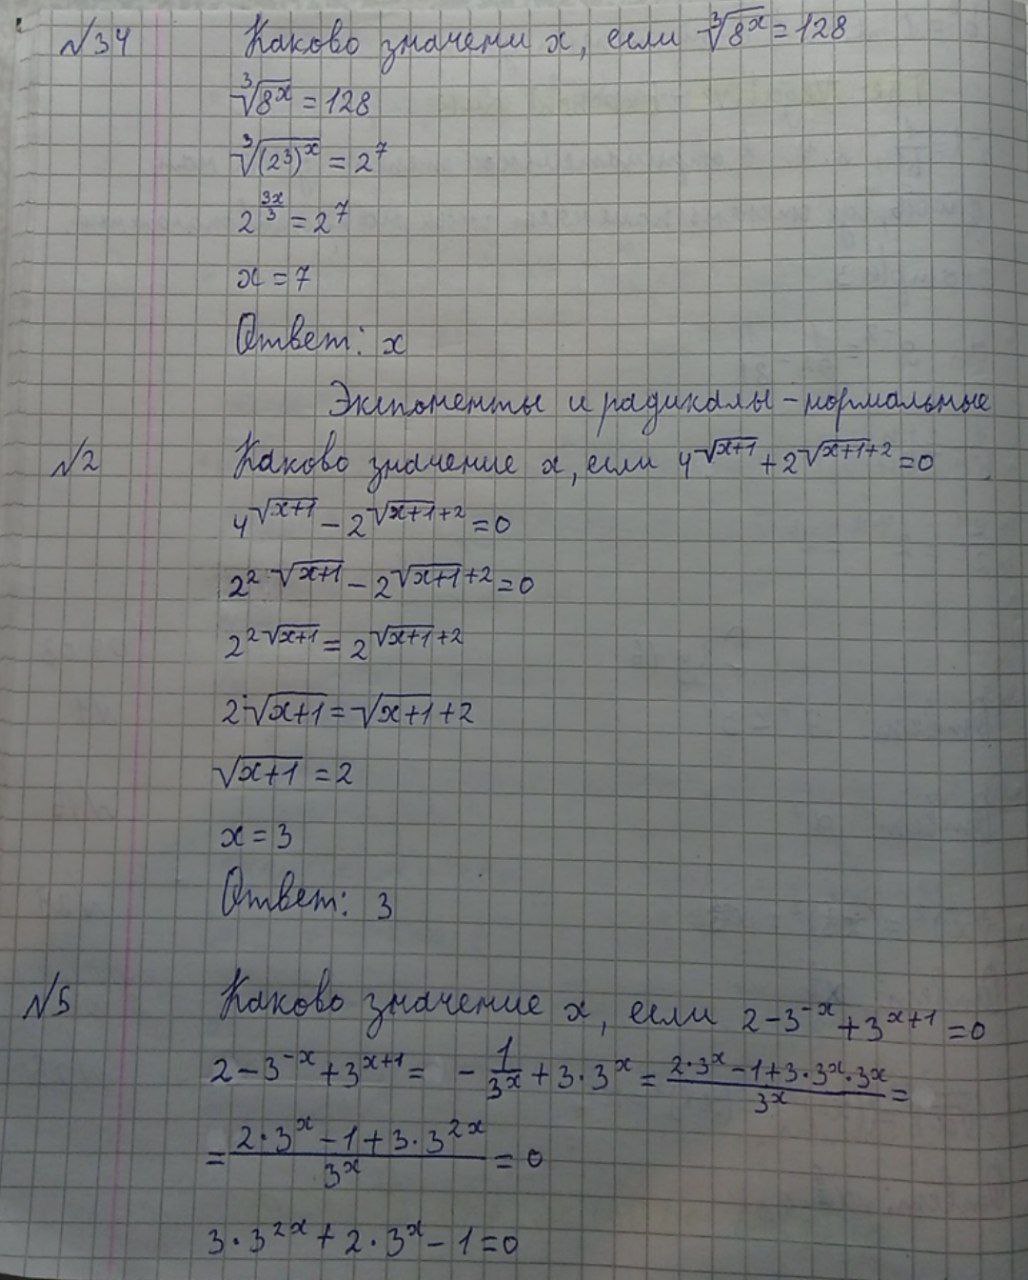 №34 Каково значени x, если ∛(8^x) = 128
∛(8^x) = 128
∛((2^3)^x) = 2^7
2^(3x/3) = 2^7
x = 7
Ответ: x
Экспоненты и радикалы - нормальные
№2 Каково значение x, если 4^(√(x+1)) + 2^(√(x+1)+2) = 0
4^(√(x+1)) - 2^(√(x+1)+2) = 0
2^(2·√(x+1)) - 2^(√(x+1)+2) = 0
2^(2√(x+1)) = 2^(√(x+1)+2)
2·√(x+1) = √(x+1) + 2
√(x+1) = 2
x = 3
Ответ: 3
№5 Каково значение x, если 2 - 3^(-x) + 3^(x+1) = 0
2 - 3^(-x) + 3^(x+1) = - 1/3^x + 3·3^x = (2·3^x - 1 + 3·3^x·3^x)/3^x =
= (2·3^x - 1 + 3·3^(2x))/3^x = 0
3·3^(2x) + 2·3^x - 1 = 0